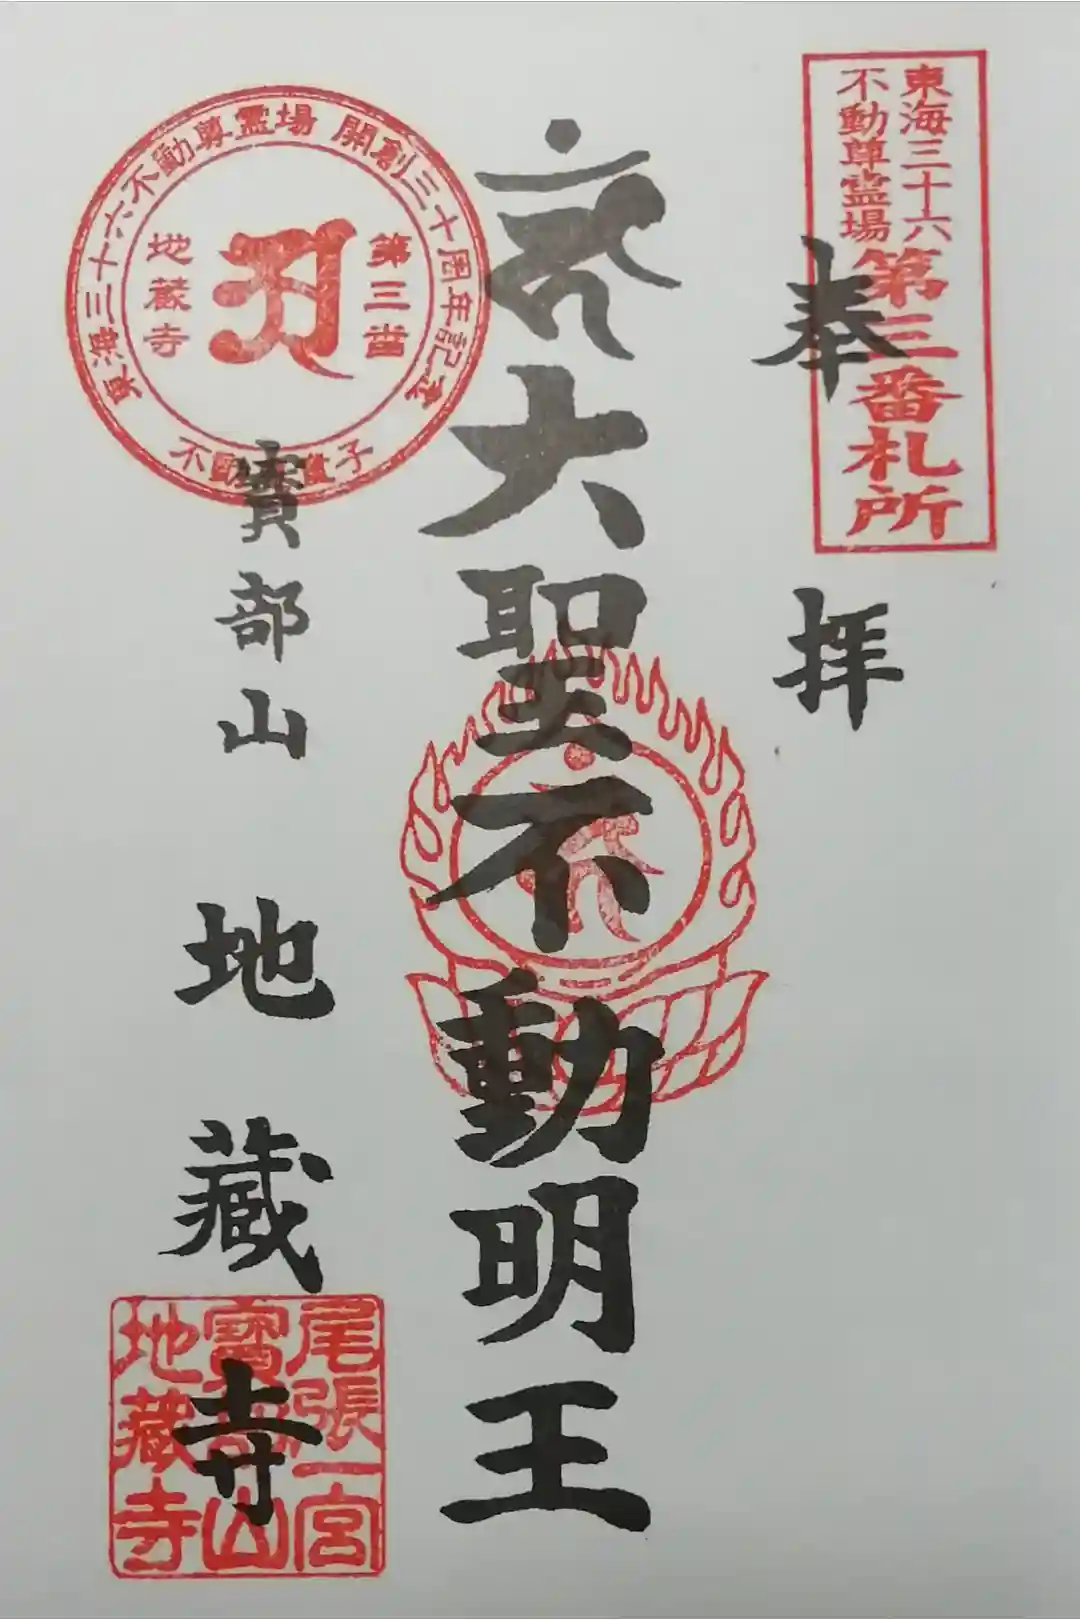 東海三十六
不動尊霊場
第三番札所
奉拝
大聖不動明王
東海三十六不動尊霊場 開創三十周年記念
第三番
地蔵寺
不動 童子
寳部山
地藏寺
尾張一宮
寳部山
地蔵寺